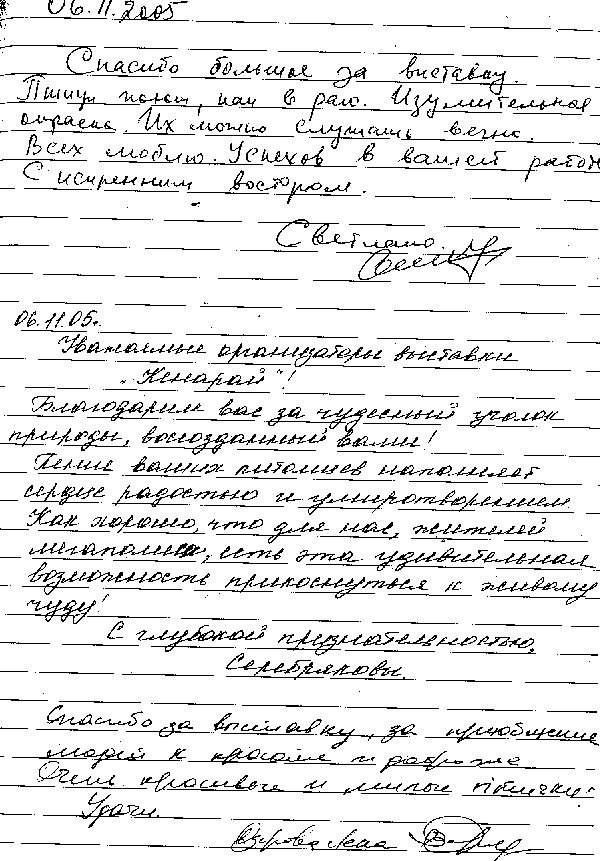 06.11.2005
Спасибо большое за выставку.
Птицы поют, как в раю. Изумительная
окраска. Их можно слушать вечно.
Всех люблю. Успехов в вашей работе
С искренним восторгом.
Светлана
06.11.05г.
Уважаемые организаторы выставки
"Кенарай"!
Благодарим вас за чудесный уголок
природы, воссозданный вами!
Пение ваших питомцев наполняет
сердце радостью и умиротворением
Как хорошо, что для нас, жителей
мегаполиса, есть эта удивительная
возможность прикоснуться к живому
чуду!
С глубокой признательностью,
Серебряковы.
Спасибо за выставку, за приобщение
людей к красоте и доброте
Очень красивые и милые птички!
Удачи.